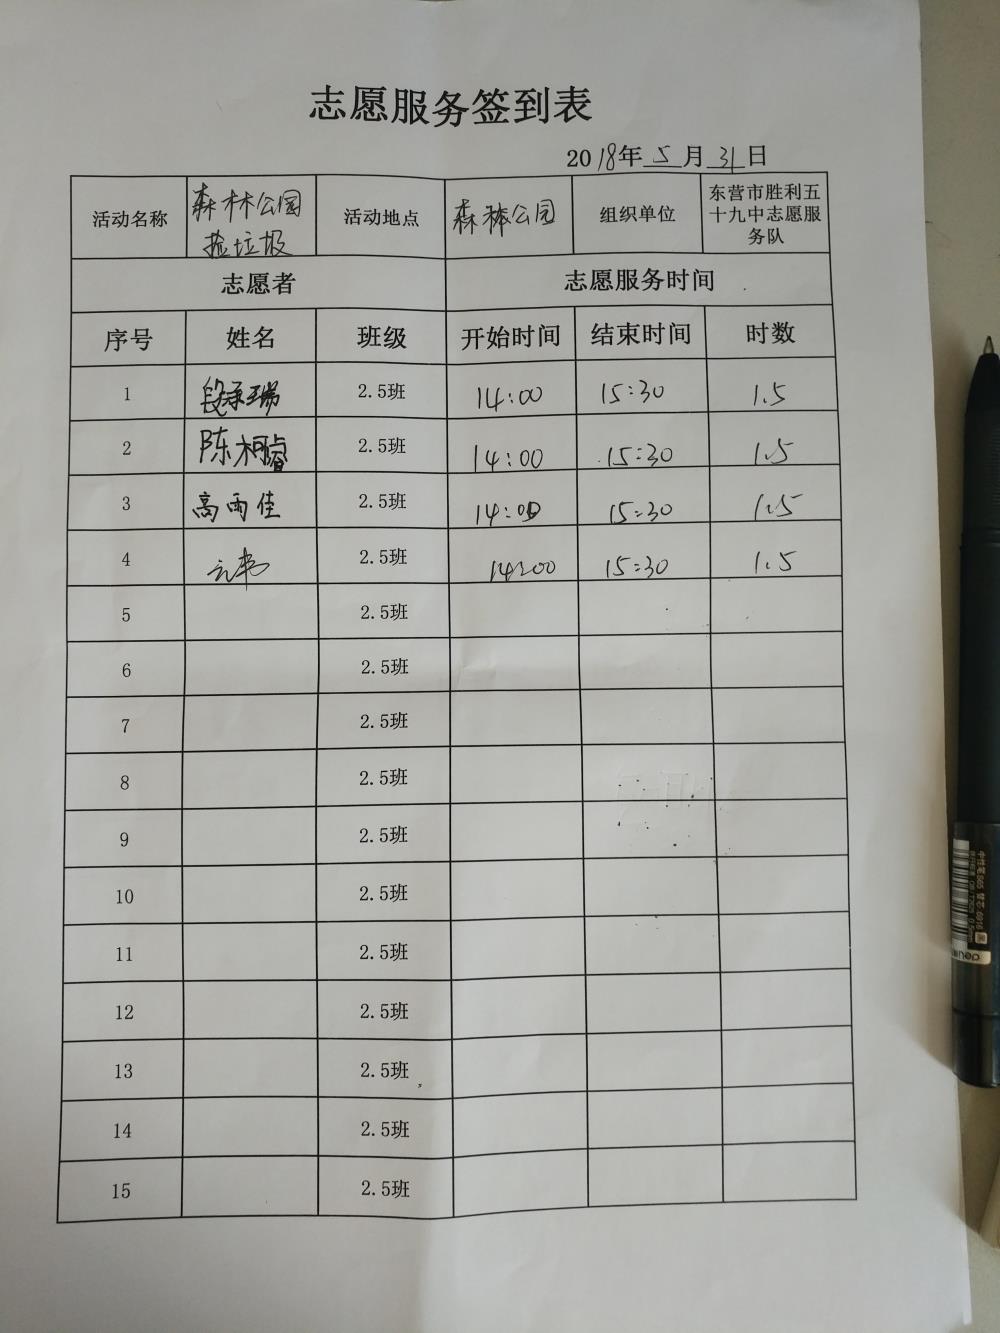 志愿服务签到表
2018年 5 月 31 日
活动名称 森林公园捡垃圾 活动地点 森林公园 组织单位 东营市胜利五十九中志愿服务队
志愿者 志愿服务时间
序号 姓名 班级 开始时间 结束时间 时数
1 段承瑞 2.5班 14:00 15:30 1.5
2 陈柯睿 2.5班 14:00 15:30 1.5
3 高雨佳 2.5班 14:00 15:30 1.5
4 2.5班 14:00 15:30 1.5
5 2.5班
6 2.5班
7 2.5班
8 2.5班
9 2.5班
10 2.5班
11 2.5班
12 2.5班
13 2.5班
14 2.5班
15 2.5班
deli